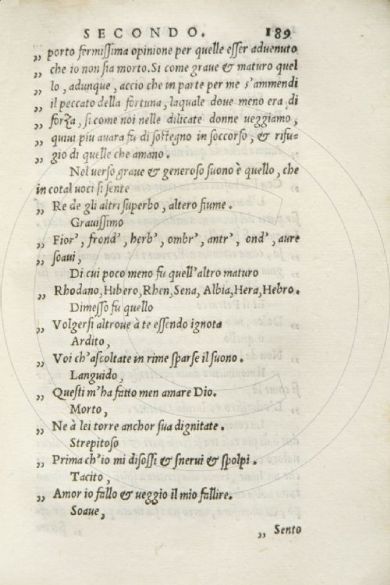 SECONDO. 189
„ porto fermissima opinione per quelle esser aduenuto
„ che io non sia morto. Si come graue & maturo quel
„ lo, adunque, accio che in parte per me s'ammendi
„ il peccato della fortuna, laquale doue meno era di
„ forza, si come noi nelle dilicate donne ueggiamo,
„ quiui piu auara fu di sostegno in soccorso, & rifu-
„ gio di quelle che amano.
Nel uerso graue & generoso suono è quello, che
in cotal uoci si sente
„ Re de gli altri superbo, altero fiume.
Grauissimo
„ Fior', frond', herb', ombr', antr', ond', aure
„ soaui,
Di cui poco meno fu quell'altro maturo
„ Rhodano, Hibero, Rhen, Sena, Albia, Hera, Hebro.
Dimesso fu quello
„ Volgersi altroue à te essendo ignota
Ardito,
„ Voi ch'ascoltate in rime sparse il suono.
Languido,
„ Questi m'ha fatto men amare Dio.
Morto,
„ Ne à lei torre anchor sua dignitate.
Strepitoso
„ Prima ch'io mi disossi & snerui & spolpi.
Tacito,
„ Amor io fallo & ueggio il mio fallire.
Soaue,
„ Sento